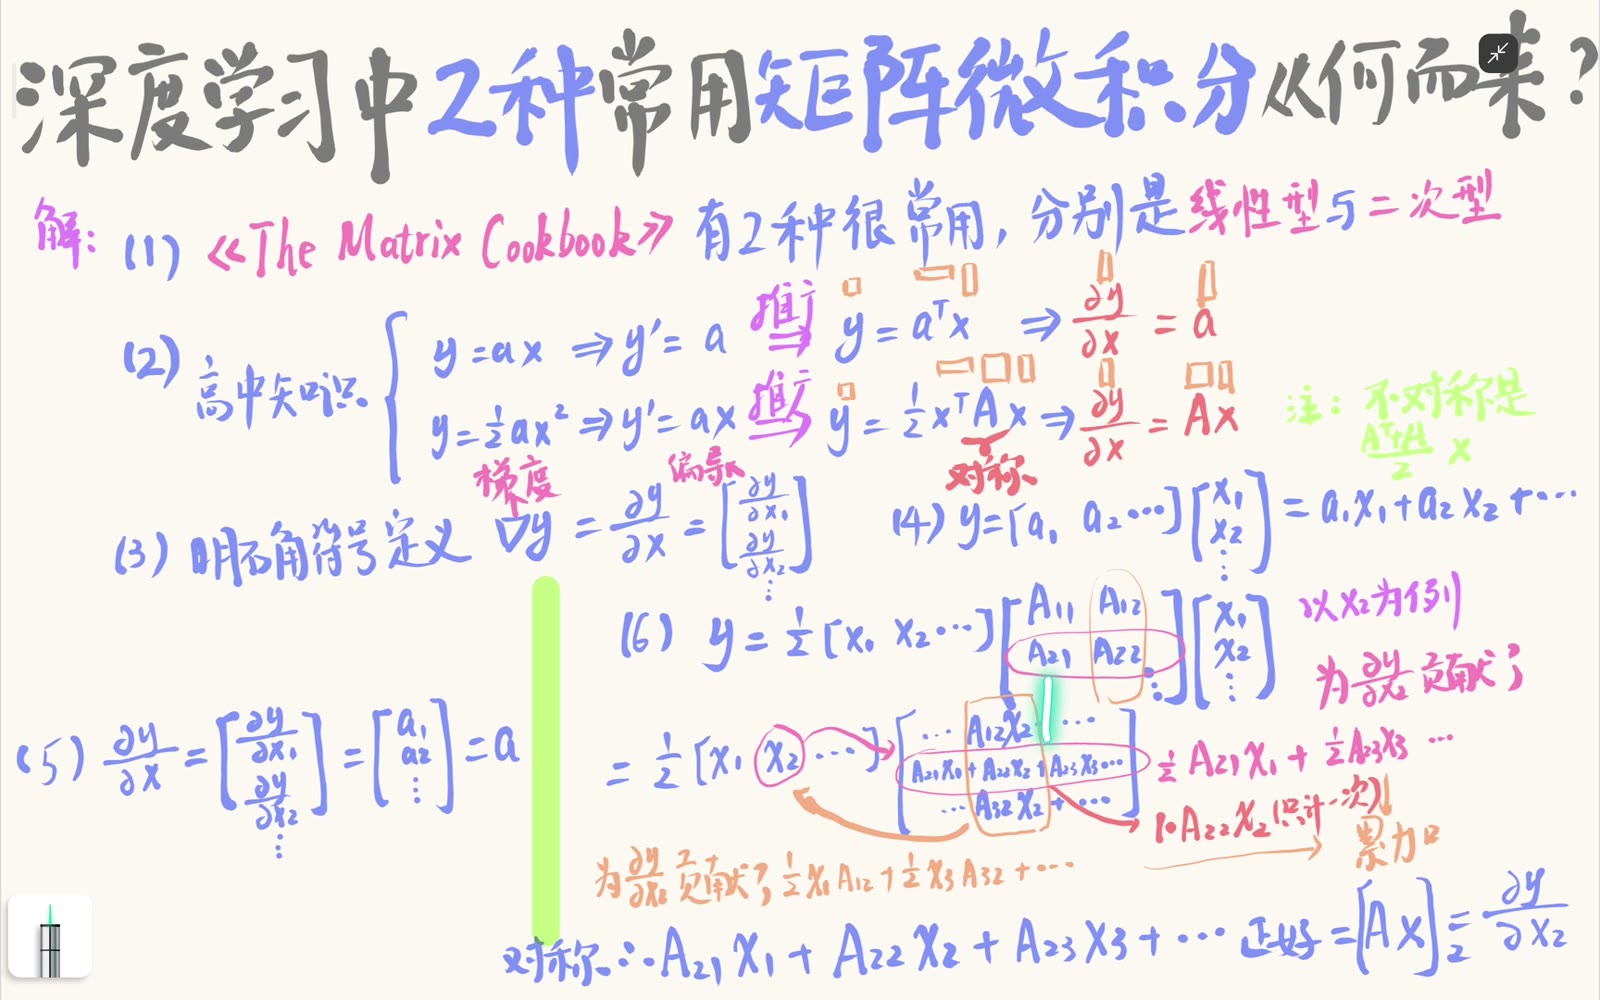 深度学习中2种常用矩阵微积分从何而来?
解: (1) 《The Matrix Cookbook》有2种很常用, 分别是线性型与二次型
(2) 高中知识
y=ax ⇒ y′=a 推广⇒ y=aᵀx ⇒ ∂y/∂x = a
y=½ax² ⇒ y′=ax 推广⇒ y=½xᵀAx ⇒ ∂y/∂x = Ax
对称
注: 不对称是 (Aᵀ+A)/2 x
梯度 偏导
(3) 明确符号定义 ∇y = ∂y/∂x = [∂y/∂x₁ ∂y/∂x₂ ⋮]
(4) y=[a₁ a₂ ⋯][x₁ x₂ ⋮] = a₁x₁+a₂x₂+⋯
(5) ∂y/∂x = [∂y/∂x₁ ∂y/∂x₂ ⋮] = [a₁ a₂ ⋮] = a
(6) y = ½[x₁ x₂ ⋯][A₁₁ A₁₂ A₂₁ A₂₂ ⋱][x₁ x₂ ⋮]
以x₂为例
为 ∂y/∂x₂ 贡献了
= ½[x₁ x₂ ⋯][⋯ A₁₂x₂ ⋯ A₂₁x₁+A₂₂x₂+A₂₃x₃⋯ ⋯ A₃₂x₂+⋯]
½A₂₁x₁+½A₂₃x₃ ⋯
1•A₂₂x₂(只计一次)
累加
为 ∂y/∂x₂ 贡献了 ½x₁A₁₂+½x₃A₃₂+⋯
对称∴ A₂₁x₁+A₂₂x₂+A₂₃x₃+⋯ 正好=[Ax]₂=∂y/∂x₂